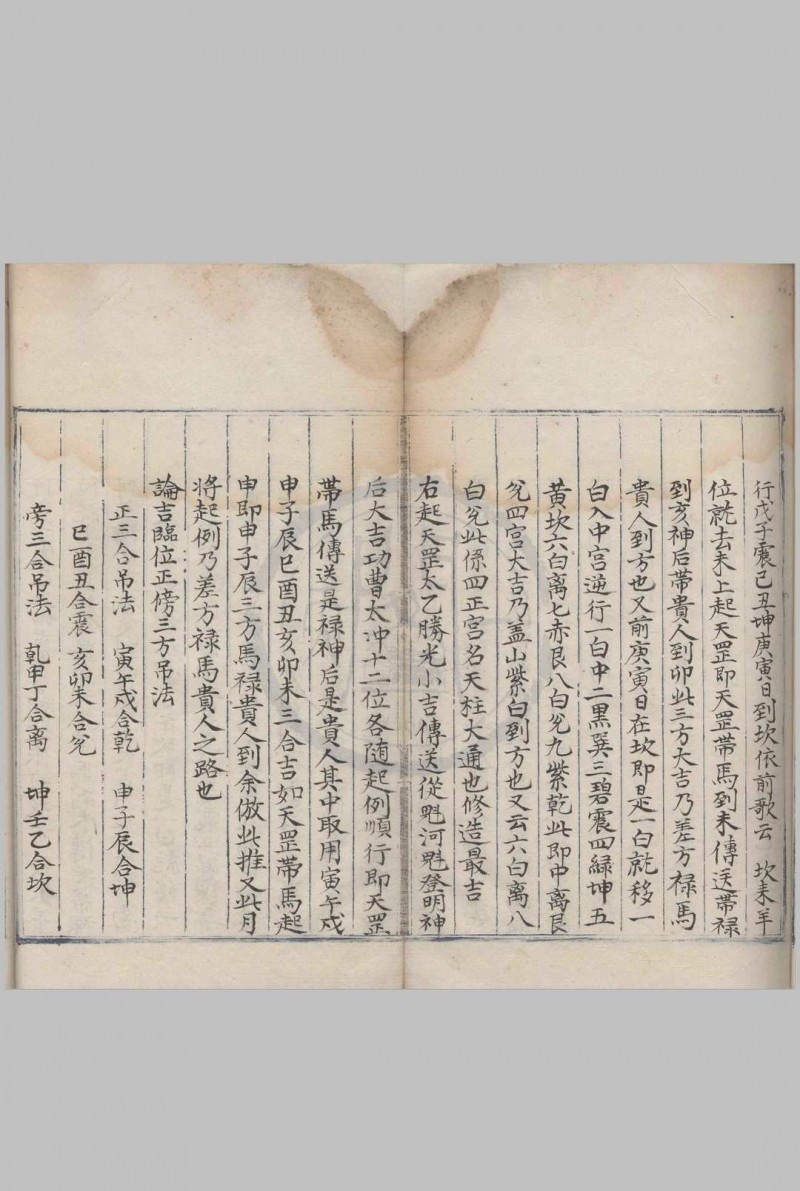 行戊子震己丑坤庚寅日到坎依前歌云　坎未羊
位就去未上起天罡即天罡帶馬到未傳送帶禄
到亥神后帶貴人到卯此三方大吉乃差方禄馬
貴人到方也又前庚寅日在坎即是一白就移一
白入中宫逆行一白中二黒巽三碧震四緑坤五
黄坎六白离七赤艮八白兊九紫乾此即中离艮
兊四宫大吉乃盖山紫白到方也又云六白离八
白兊此係四正宫名天柱大通也修造最吉
右起天罡太乙勝光小吉傳送從魁河魁登明神
后大吉功曹太冲十二位各随起例順行即天罡
帶馬傳送是禄神后是貴人其中取用寅午戍
申子辰巳酉丑亥卯未三合吉如天罡帶馬起
申即申子辰三方馬禄貴人到余倣此推又此月
将起例乃差方禄馬貴人之路也
論吉臨位正傍三方吊法
正三合吊法　寅午戍合乾　申子辰合坤
巳酉丑合震　亥卯未合兊
傍三合吊法　乹甲丁合离　坤壬乙合坎